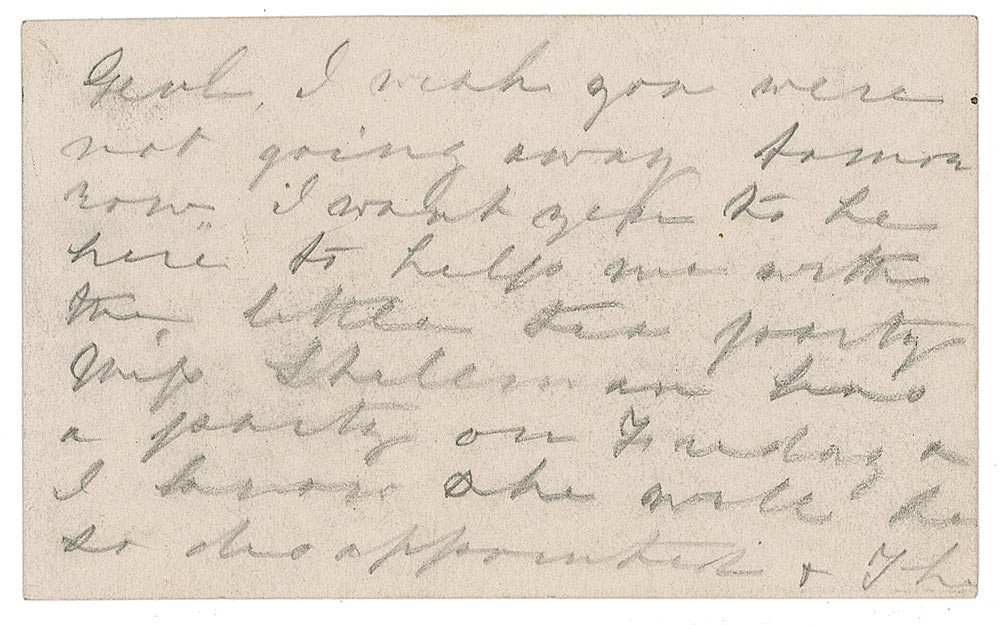 Genl, I wish you were
not going away tomor
row, I want you to be
here to help me with
the little tea party
Miss has
a party on Friday a
I know she will be
so disappointed & The